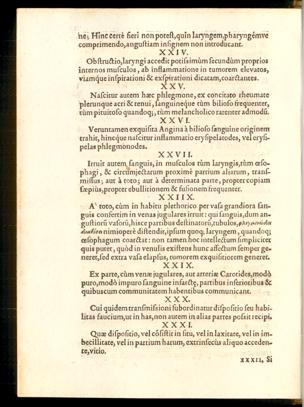 ne; Hinc certè fieri non potest, quin laryngem, pharyngémve
comprimendo, angustiam insignem non introducant.
XXIV.
Obstructio, laryngi accedit potissimùm secundùm proprios
internos musculos, ab inflammatione in tumorem elevatos,
viámque inspirationi & exspirationi dicatam, coarctantes.
XXV.
Nascitur autem hæc phlegmone, ex concitato rheumate
plerunque acri & tenui, sanguineque tùm bilioso frequenter,
tùm pituitoso quandoq;, tùm melancholico rarenter admodũ.
XXVI.
Veruntamen exquisita Angina à bilioso sanguine originem
trahit, hincque nascitur inflammatio erysipelatodes, vel erysi-
pelas phlegmonodes.
XXVII.
Irruit autem sanguis, in musculos tùm laryngis, tùm œso-
phagi, & circumjectarum proximè partium aliarum, trans-
missus; aut à toto; aut à determinata parte, propter copiam
sæpius, propter ebullitionem & fusionem frequenter.
XXIIX.
A toto, cùm in habitu plethorico per vasa grandiora san-
guis confertim in venas jugulares irruit: qui sanguis, dum an-
gustiorũ vasorũ, hisce partibus destinatorũ, tubulos,
nimioperè distendit, ipsum quoq; laryngem, quandoq;
œsophagum coarctat: non tamen hoc intellectum simpliciter
quis putet, quòd in venulis existens hunc affectum semper ge-
neret, sed extra vasa elapsus, tumorem exquisitiorem generet.
XXIX.
Ex parte, cùm venæ jugulares, aut arteriæ Carotides, modò
puro, modò impuro sanguine infarctæ, partibus inferioribus &
quibuscum communitatem habentibus communicant.
XXX.
Cui quidem transmissioni subordinatur dispositio seu habi-
litas faucium, ut in has, non autem in alias partes possit recipi.
XXXI.
Quæ dispositio, vel cõsistit in situ, vel in laxitate, vel in im-
becillitate, vel in partium harum, extrinsecùs aliquo acceden-
te, vitio.
XXXII. Si